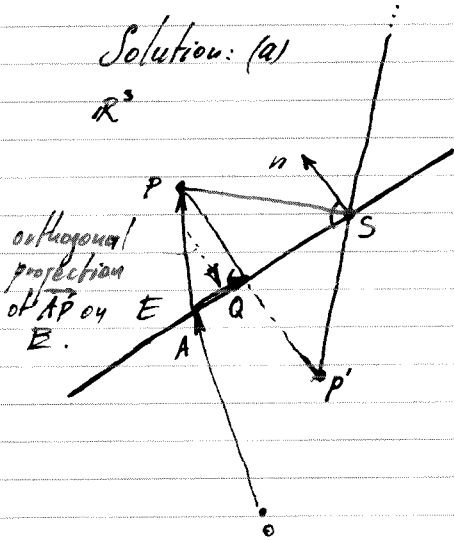 Solution: (a)
R³
n
P
S
orthogonal
projection
of AP on
E.
E
Q
A
P'
O